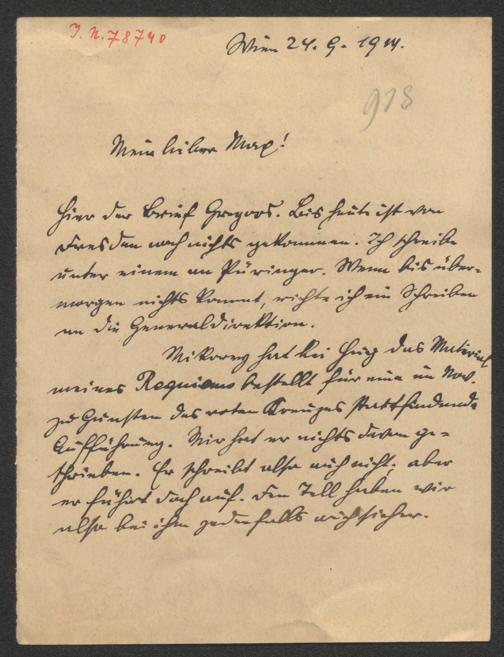 I. N. 78740
Wien 24. 9. 1914.
918
Mein lieber Max!
Hier der Brief Gregors. Bis heute ist von
Dresden noch nichts gekommen. Ich schreibe
unter einem an Püringer. Wenn bis über-
morgen nichts kommt, richte ich ein Schreiben
an die Generaldirektion.
Mikorey hat bei das Material
meines Requiems bestellt für eine im Nov.
zu Gunsten des roten Kreuzes stattfindende
Aufführung. Mir hat er nichts davon ge-
schrieben. Er schreibt also auch nicht. aber
er führt doch auf. Den Tell haben wir
also bei ihm jedenfalls